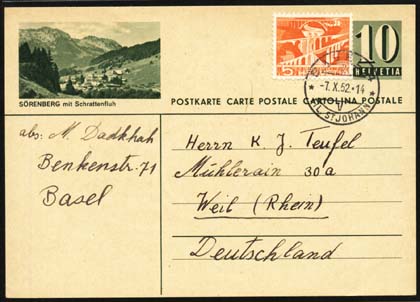 10
HELVETIA
5
-7.X.52-14
ST.JOHANN
SÖRENBERG mit Schrattenfluh
POSTKARTE CARTE POSTALE CARTOLINA POSTALE
abs: M. Dadkhah
Benkenstr. 71
Basel
Herrn K. J. Teufel
Mühlerain 30a
Weil (Rhein)
Deutschland